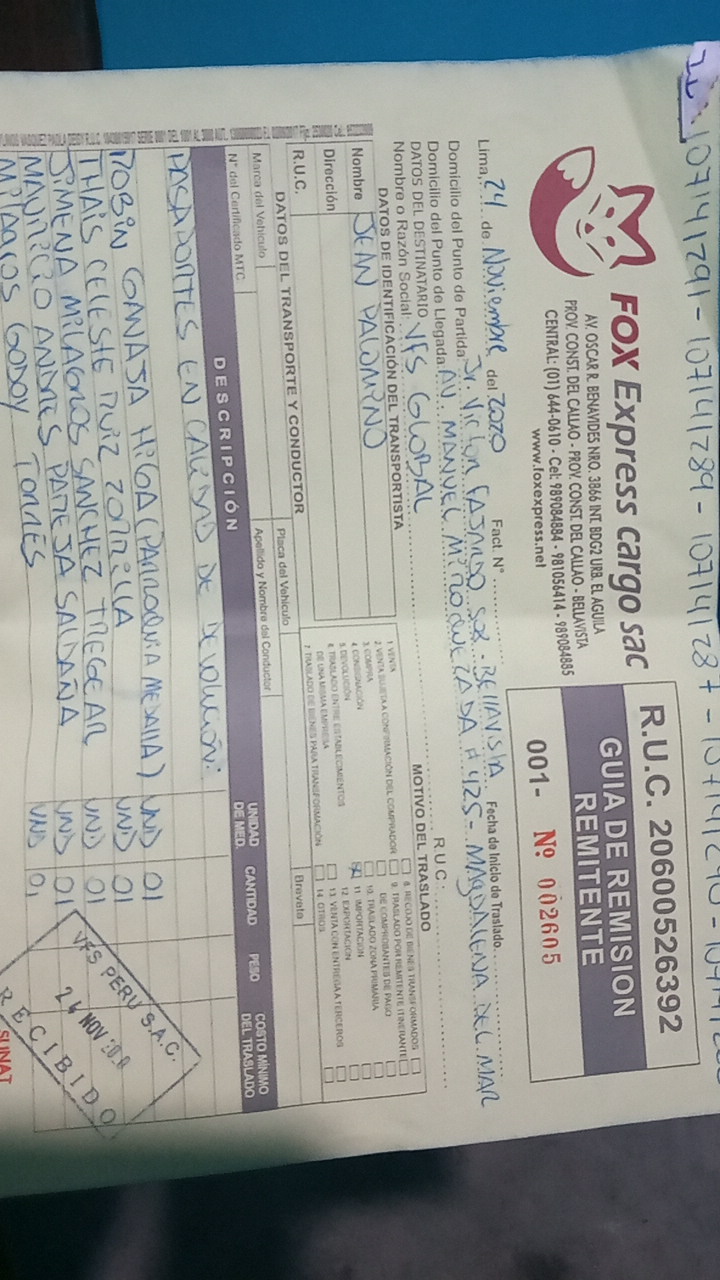 107141291 - 107141289 - 107141287 - 107141290 -
FOX Express cargo sac
AV. OSCAR R. BENAVIDES NRO. 3866 INT. BDG2 URB. EL AGUILA
PROV. CONST. DEL CALLAO - PROV. CONST. DEL CALLAO - BELLAVISTA
CENTRAL: (01) 644-0610 - Cel: 989084884 - 981056414 - 989084885
www.foxexpress.net
R.U.C. 20600526392
GUIA DE REMISION
REMITENTE
001- Nº 002605
Lima, 24 de Noviembre del 2020 Fact. N° Fecha de Inicio de Traslado
Domicilio del Punto de Partida Jr. Victor FAJARDO - BELLAVISTA
Domicilio del Punto de Llegada AV. MANUEL # 425 - MAGDALENA DEL MAR
DATOS DEL DESTINATARIO
Nombre o Razón Social: VFS GLOBAL R.U.C.
DATOS DE IDENTIFICACIÓN DEL TRANSPORTISTA
Nombre JEAN PALOMINO
Dirección
R.U.C.
MOTIVO DEL TRASLADO
1. VENTA
2. VENTA SUJETA A CONFIRMACIÓN DEL COMPRADOR
3. COMPRA
4. CONSIGNACIÓN
5. DEVOLUCIÓN
6. TRASLADO ENTRE ESTABLECIMIENTOS
DE UNA MISMA EMPRESA
7. TRASLADO DE BIENES PARA TRANSFORMACIÓN
8. RECOJO DE BIENES TRANSFORMADOS
9. TRASLADO POR REMITENTE ITINERANTE
DE COMPROBANTES DE PAGO
10. TRASLADO ZONA PRIMARIA
11. IMPORTACION
12. EXPORTACION
13. VENTA CON ENTREGA A TERCEROS
14. OTROS
DATOS DEL TRANSPORTE Y CONDUCTOR
Marca del Vehículo Placa del Vehículo Brevete
N° del Certificado MTC Apellido y Nombre del Conductor
DESCRIPCIÓN UNIDAD DE MED. CANTIDAD PESO COSTO MÍNIMO DEL TRASLADO
PASAPORTES EN CALIDAD DE DEVOLUCIÓN:
ROBIN GANAJA HIGA (PARROQUIA MEDALLA) UND 01
THAIS CELESTE RUIZ ZORRILLA UND 01
JIMENA MILAGROS SANCHEZ TREGEAR UND 01
MAURICIO ANDRES PAREJA SALDAÑA UND 01
MILAGROS GODOY TORRES UND 01
VFS PERU S.A.C.
24 NOV
RECIBIDO
SUNAT